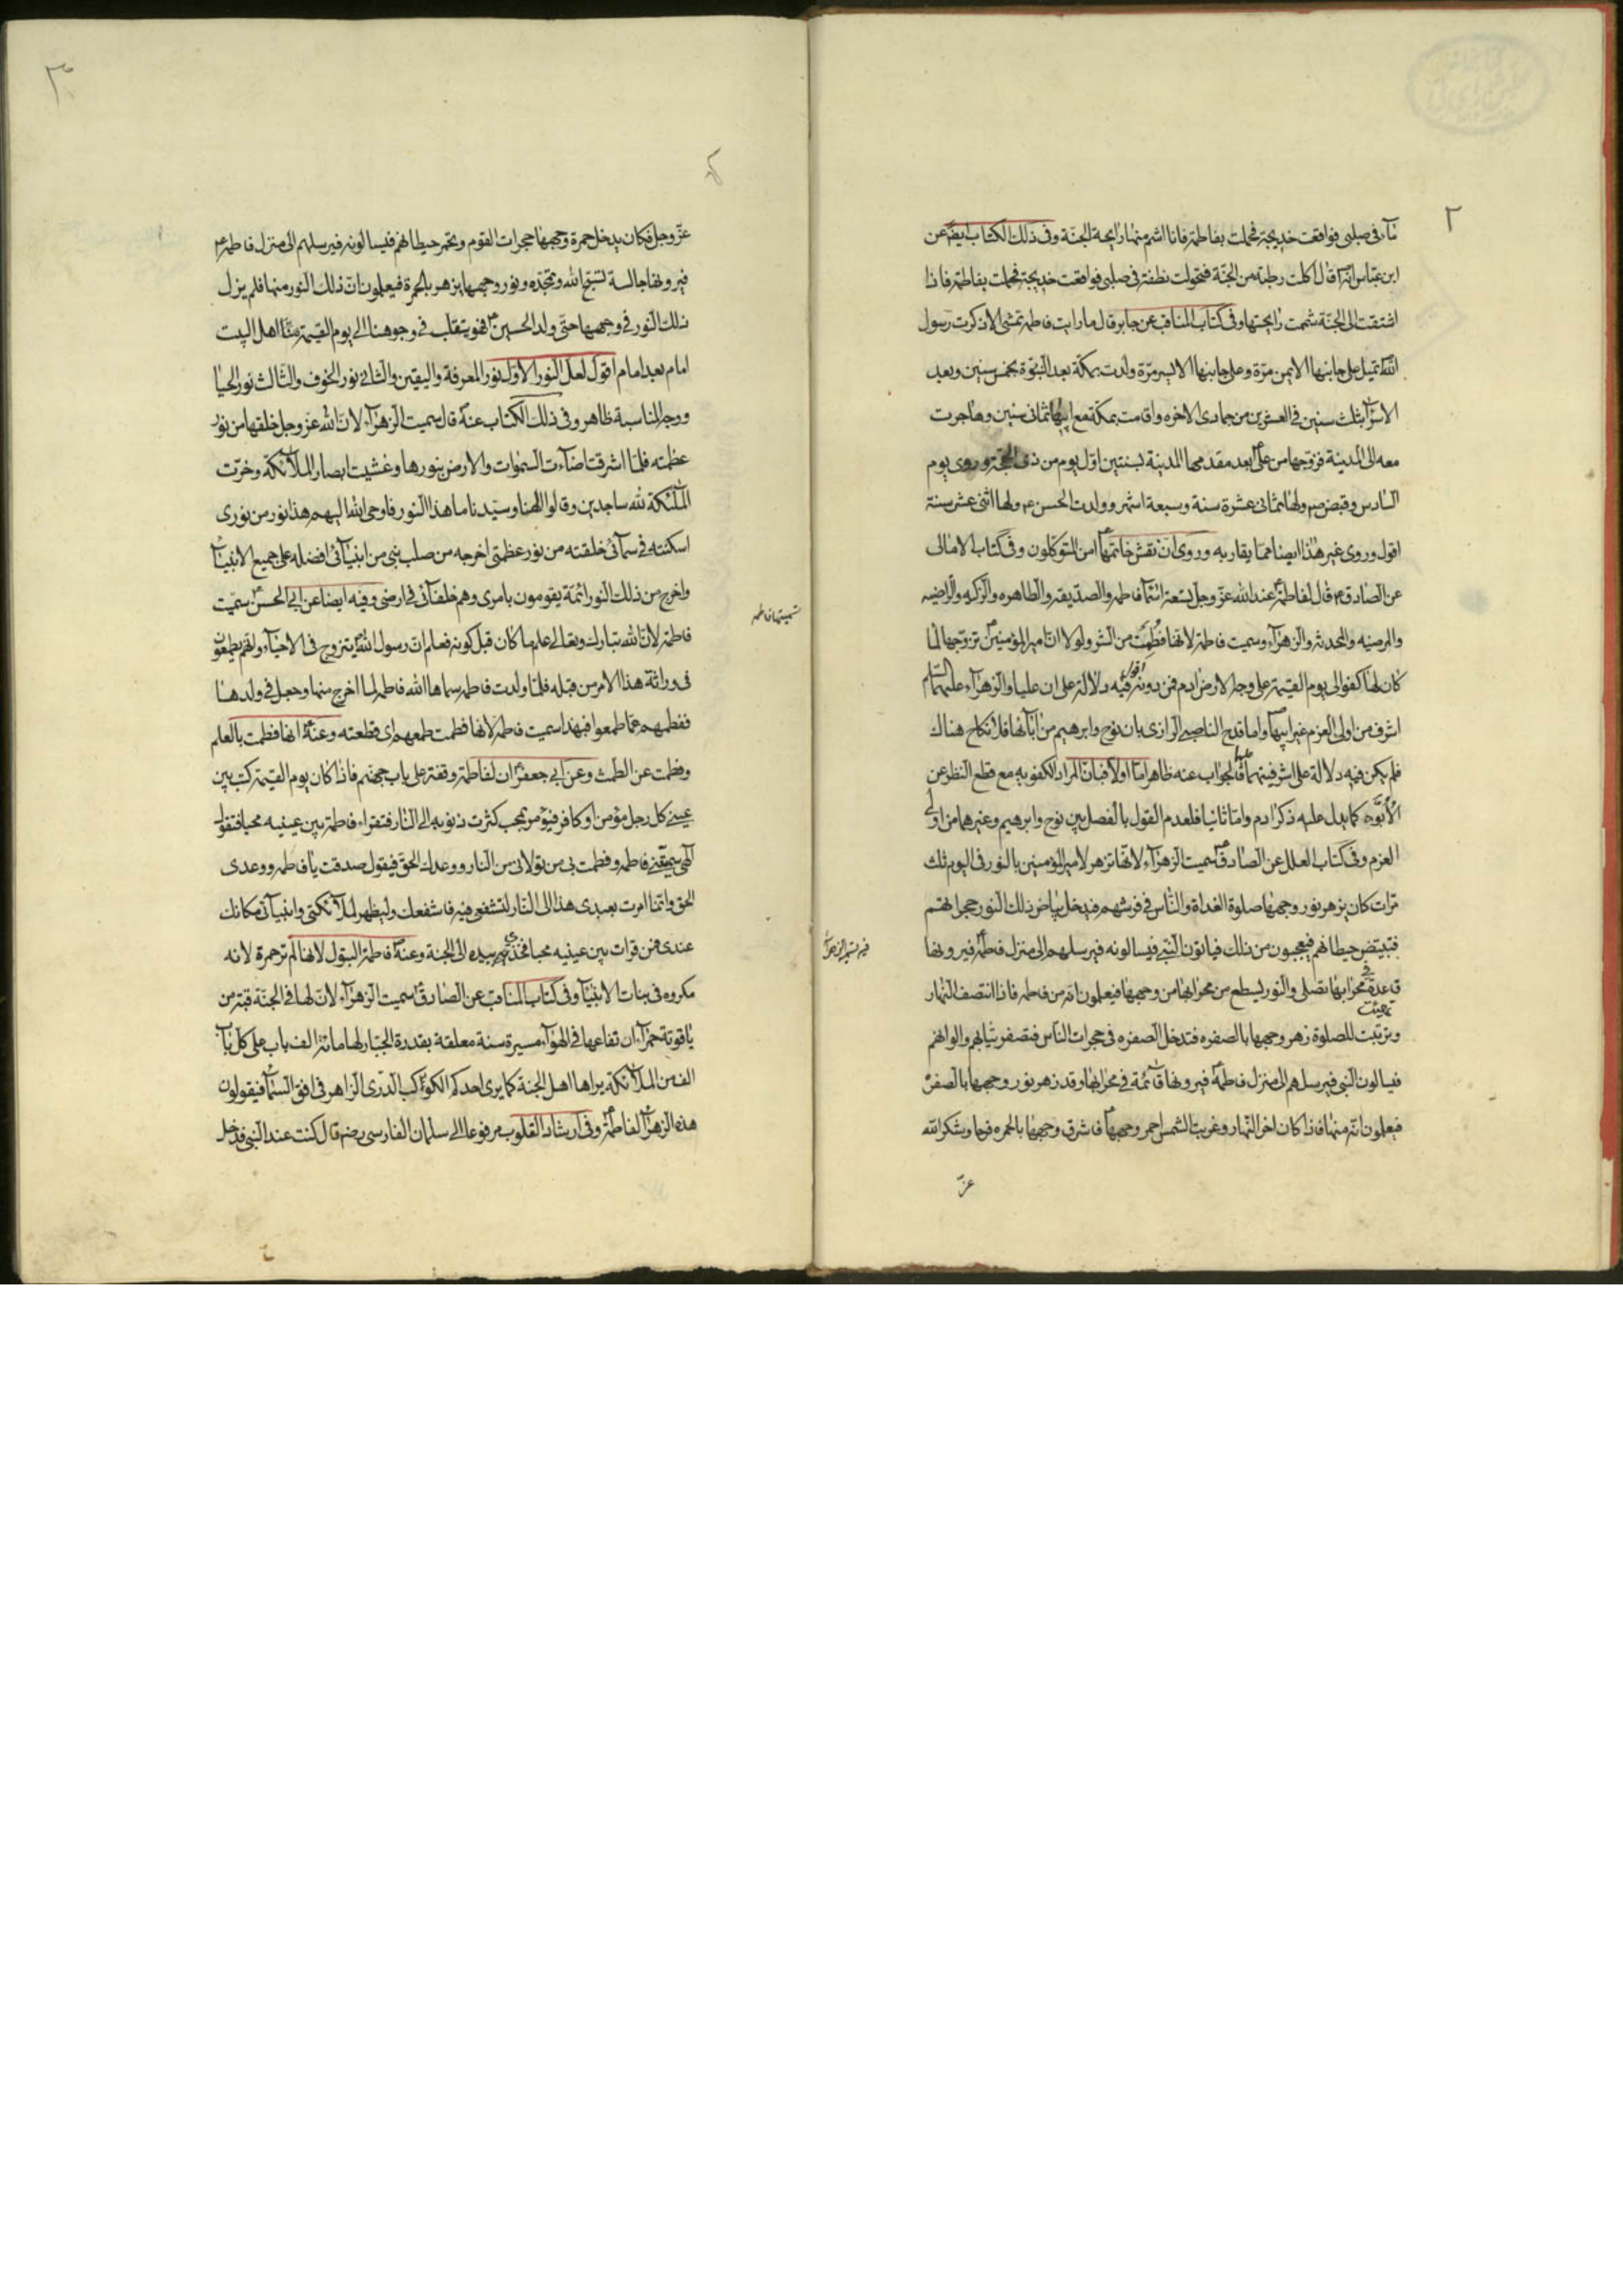 ٢
مآء فى صلبى فواقعت خديجة فحملت بفاطمة فانا اشم منها رايحة الجنة وفى ذلك الكتاب ايضا عن
ابن عباس انه قال اكلت رطبة من الجنة فتحولت نطفة فى صلبى فواقعت خديجة فحملت بفاطمة فاذا
اشتقت الى الجنة شممت رايحتها وفى كتاب المناقب عن جابر قال ما رايت فاطمة تمشى الا ذكرت رسول
الله تميل على جانبها الايمن مرة وعلى جانبها الايسر مرة ولدت بمكة بعد النبوة بخمس سنين وبعد
الاسرآء بثلث سنين فى العشرين من جمادى الاخره واقامت بمكة مع ابيها ثمانى سنين وهاجرت
معه الى المدينة فزوجها من على بعد مقدمها المدينة بسنتين اول يوم من ذى الحجة وروى يوم
السادس وقبض ص ولها ثمانى عشرة سنة وسبعة اشهر وولدت الحسن ع ولها اثنى عشر سنة
اقول وروى غير هذا ايضا مما يقاربه وروى ان نقش خاتمها امن المتوكلون وفى كتاب الامالى
عن الصادق ع قال لفاطمة عند الله عز وجل تسعة اسمآء فاطمه والصديقه والطاهره والزكيه والراضيه
والمرضيه والمحدثه والزهرآء وسميت فاطمة لانها فُطِمَت من الشر ولولا ان امير المؤمنين تزوجها لما
كان لها كفو الى يوم القيمة على وجه الارض ادم فمن دونه اقول فيه دلالة على ان عليا والزهرآء عليهما السلام
اشرف من اولى العزم غير ابيها واما قدح الناصبى الرازى بان نوح وابرهيم من ابآئها فلا نكاح هناك
فلم يكن فيه دلالة على اشرفيتهما عليهما فالجواب عنه ظاهر اما اولا فبان المراد الكفو به مع قطع النظر عن
الأُبُوَّة كما يدل عليه ذكر ادم واما ثانيا فلعدم القول بالفصل بين نوح وابرهيم وغيرهما من اولى
العزم وفى كتاب العلل عن الصادق سميت الزهرآء لانها تزهر لامير المؤمنين بالنور فى اليوم ثلث
مرات كان يزهر نور وجهها صلوة الغداة والناس فى فرشهم فيدخل بياض ذلك النور حجراتهم
فتبيض حيطانهم فيعجبون من ذلك فياتون النبى فيسالونه فيرسلهم الى منزل فاطمة فيرونها
قاعدة فى محرابها تصلى والنور يسطع من محرابها من وجهها فيعلمون انه من فاطمه فاذا انتصف النهار
وترتبت للصلوة زهر وجهها بالصفره فتدخل الصفره فى حجرات الناس فتصفر ثيابهم والوانهم
فيسالون النبى فيرسلهم الى منزل فاطمة فيرونها قائمة فى محرابها وقد زهر نور وجهها بالصفرة
فيعلمون انه منها فاذا كان اخر النهار وغربت الشمس احمر وجهها فاشرق وجهها بالحمره فرحا وشكرا لله
عز
عز وجل فكان يدخل حمرة وجهها حجرات القوم وتحمر حيطانهم فيسالونه فيرسلهم الى منزل فاطمة ع
فيرونها جالسة تسبح الله وتمجده ونور وجهها يزهر بالحمرة فيعلمون ان ذلك النور منها فلم يزل
ذلك النور فى وجهها حتى ولد الحسين فهو يتقلب فى وجوهنا الى يوم القيمة منا اهل البيت
امام بعد امام اقول لعل النور الاول نور المعرفة واليقين والثانى نور الخوف والثالث نور الحيا
ووجه المناسبة ظاهر وفى ذلك الكتاب عنه قال سميت الزهرآء لان الله عز وجل خلقها من نور
عظمته فلما اشرقت اضاءت السموات والارض بنورها وغشيت ابصار الملآئكة وخرت
الملئكة لله ساجدين وقالوا الهنا وسيدنا ما هذا النور فاوحى الله اليهم هذا نور من نورى
اسكنته فى سمآئى خلقته من نور عظمتى اخرجه من صلب نبى من انبيآئى افضله على جميع الانبيآء
واخرج من ذلك النور ائمة يقومون بامرى وهم خلفآئى فى ارضى وفيه ايضا عن ابى الحسن سميت
فاطمة لان الله تبارك وتعالى علم ما كان قبل كونه فعلم ان رسول الله يتزوج فى الاحيآء وانهم يطمعون
فى وراثة هذا الامر من قبله فلما ولدت فاطمه سماها الله فاطمه لما اخرج منها وجعل فى ولدها
ففطمهم عما طمعوا فبهذا سميت فاطمه لانها فطمت طمعهم اى قطعته وعنه انها فطمت بالعلم
وفطمت عن الطمث وعن ابى جعفر ان لفاطمة وقفة على باب جهنم فاذا كان يوم القيمة كتب بين
عينى كل رجل مؤمن او كافر فيؤمر بمحب كثرت ذنوبه الى النار فتقراء فاطمة بين عينيه محبا فتقول
الهى سميتنى فاطمه وفطمت بى من تولانى من النار ووعدك الحق فيقول صدقت يا فاطمه ووعدى
الحق وانما امرت بعبدى هذا الى النار لتشفعى فيه فاشفعك وليظهر لملآئكتى وانبيآئى مكانك
عندى فمن قرات بين عينيه محبا فخذى بيده الى الجنة وعنه فاطمة البتول لانها لم تر حمرة لانه
مكروه فى بنات الانبيآء وفى كتاب المناقب عن الصادق سميت الزهرآء لان لها فى الجنة قبة من
ياقوتة حمرآء ارتفاعها فى الهوآء مسيرة سنة معلقة بقدرة الجبار لها مائة الف باب على كل باب
الف من الملآئكة يراها اهل الجنة كما يرى احدكم الكوكب الدرى الزاهر فى افق السمآء فيقولون
هذه الزهرآء لفاطمة وفى ارشاد القلوب مرفوعا الى سلمان الفارسى رضه قال كنت عند النبى فدخل
تسميتها فاطمه